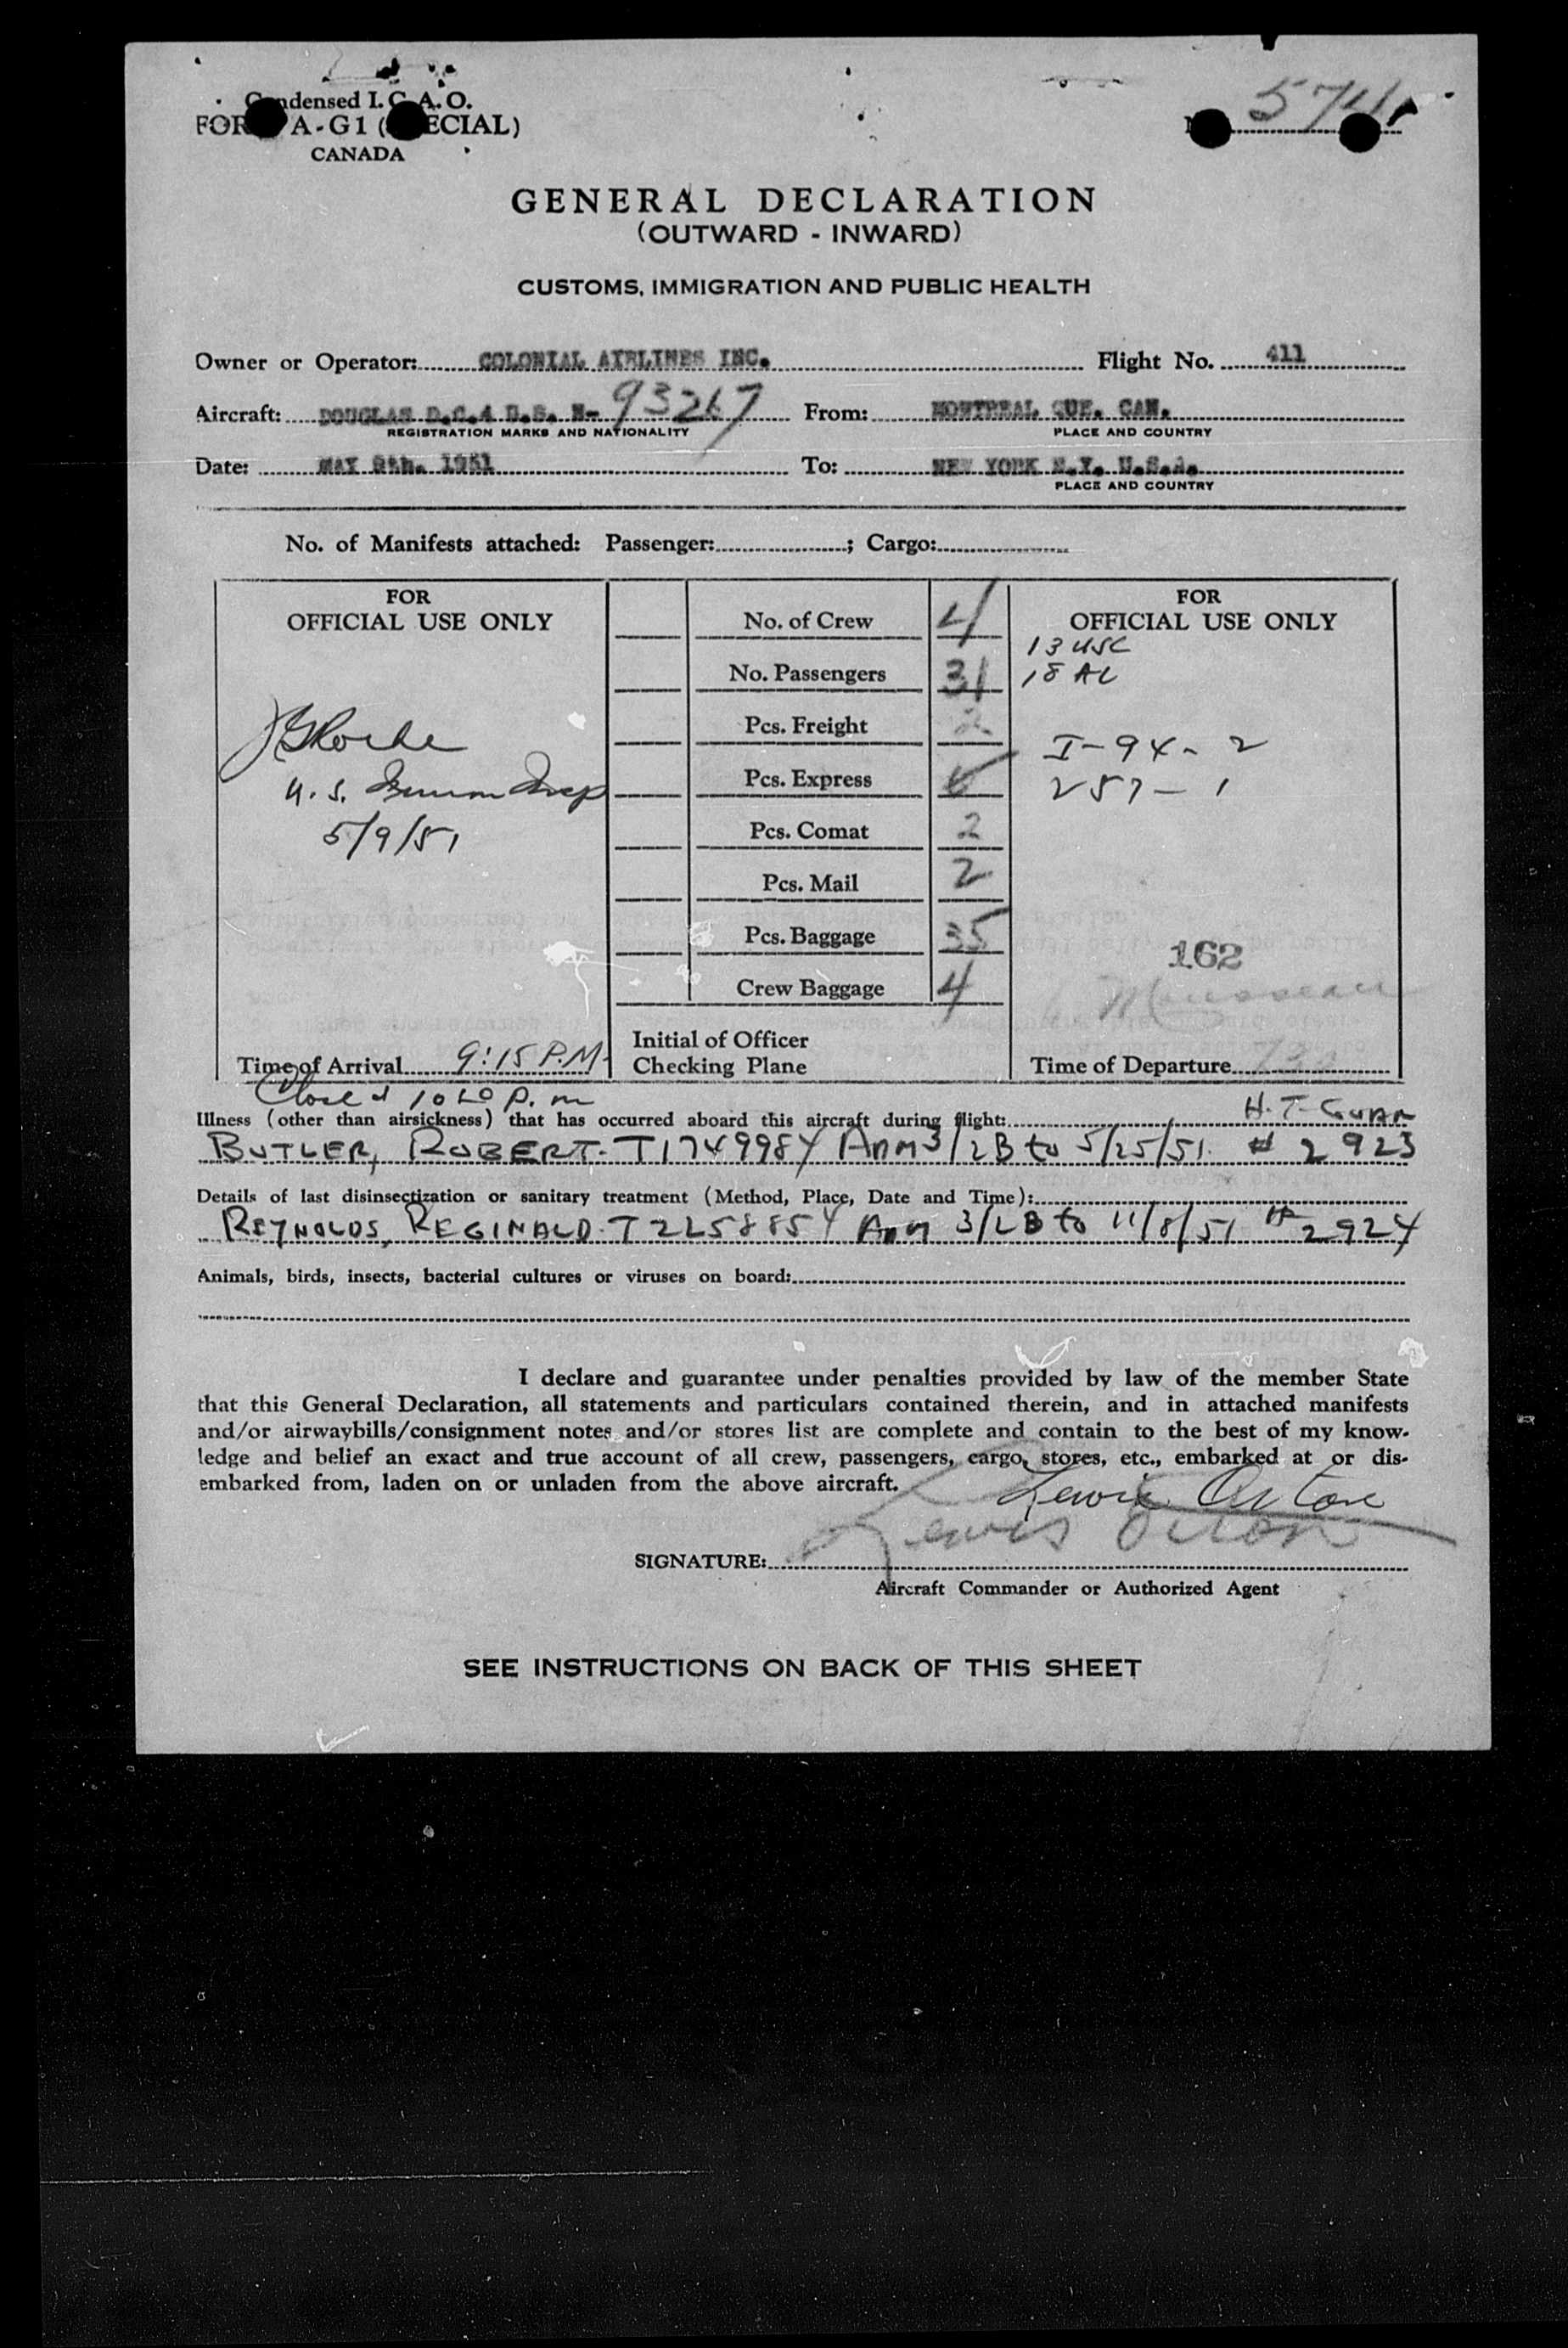 Condensed I.C.A.O.
FORM A-G1 (SPECIAL)
CANADA
574
GENERAL DECLARATION
(OUTWARD - INWARD)
CUSTOMS, IMMIGRATION AND PUBLIC HEALTH
Owner or Operator: COLONIAL AIRLINES INC. Flight No. 411
Aircraft: DOUGLAS D.C.4 U.S. N- 93267 From: MONTREAL QUE. CAN.
REGISTRATION MARKS AND NATIONALITY PLACE AND COUNTRY
Date: MAY 9th. 1951 To: NEW YORK N.Y. U.S.A.
PLACE AND COUNTRY
No. of Manifests attached: Passenger: ; Cargo:
FOR
OFFICIAL USE ONLY
No. of Crew 4
No. Passengers 31
Pcs. Freight 2
Pcs. Express
Pcs. Comat 2
Pcs. Mail 2
Pcs. Baggage 35
Crew Baggage 4
FOR
OFFICIAL USE ONLY
13 USC
18 AL
I-94- 2
257- 1
162
U.S. Immn Insp
5/9/51
Time of Arrival 9:15 P.M.
Initial of Officer
Checking Plane
Time of Departure
Closed 10 20 p.m
Illness (other than airsickness) that has occurred aboard this aircraft during flight: H.T.
BUTLER, ROBERT. T1749984 ADM 3/2B to 5/25/51. # 2923
Details of last disinsectization or sanitary treatment (Method, Place, Date and Time):
REYNOLDS, REGINALD. T2258854 ADM 3/2B to 11/8/51 # 2924
Animals, birds, insects, bacterial cultures or viruses on board:
I declare and guarantee under penalties provided by law of the member State
that this General Declaration, all statements and particulars contained therein, and in attached manifests
and/or airwaybills/consignment notes and/or stores list are complete and contain to the best of my know-
ledge and belief an exact and true account of all crew, passengers, cargo, stores, etc., embarked at or dis-
embarked from, laden on or unladen from the above aircraft.
Lewis
Lewis
SIGNATURE:
Aircraft Commander or Authorized Agent
SEE INSTRUCTIONS ON BACK OF THIS SHEET